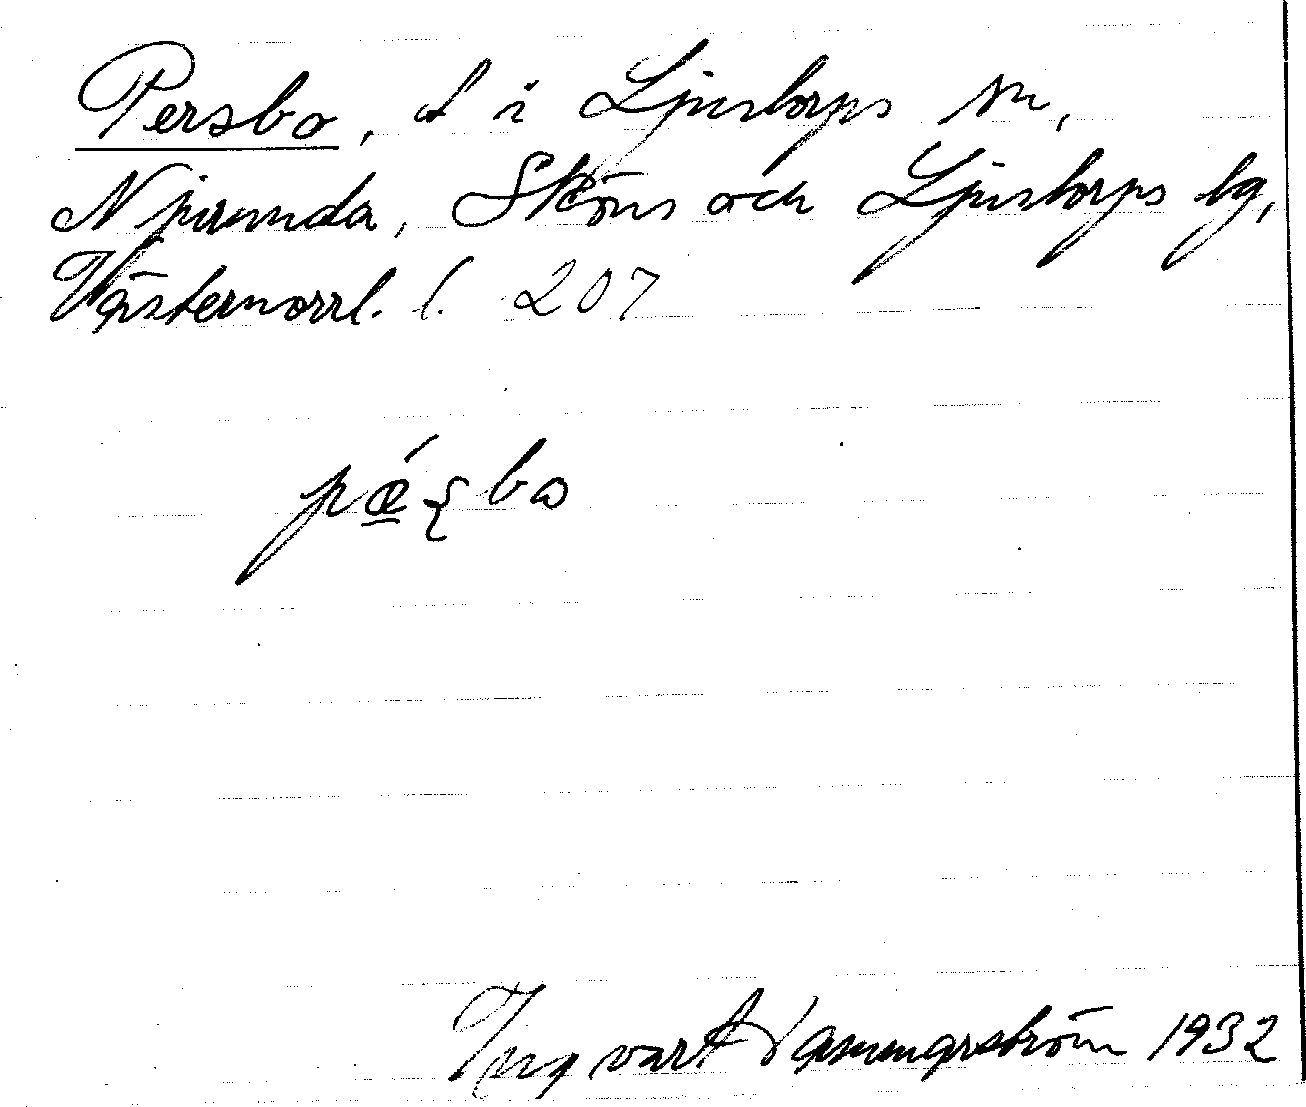 Persbo, t i Ljustorps sn,
Njurunda, Sköns och Ljustorps tg,
Västernorrl. l. 207
pǽʂbo
Ingvart 1932